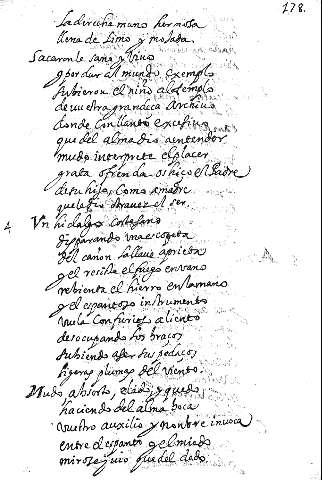 178.
La derecha mano hermosa
llena de Limo y mojada.
Sacaronle sano y vivo
y por dar al mundo exemplo
subieron el niño al templo
de vuestra grandeça Archivo
donde con llanto excesivo
que del alma dio a entender
mudo interprete el placer
grata ofrenda os hiço el Padre
de su hijo, como a madre
que le dio otra vez el ser.
4 Un hidalgo Cortesano
disparando una escopeta
del cañon la llave aprieta
y el resista el fuego en vano
rebienta el hierro en la mano
y el espantoso instrumento
vuela con furioso aliento
desocupando los braços
subiendo a ser sus pedaços
ligeras plumas del viento.
Mudo absorto, elado, y quedo
haciendo del alma boca
vuestro auxilio y nombre invoca
entre el espanto y el miedo